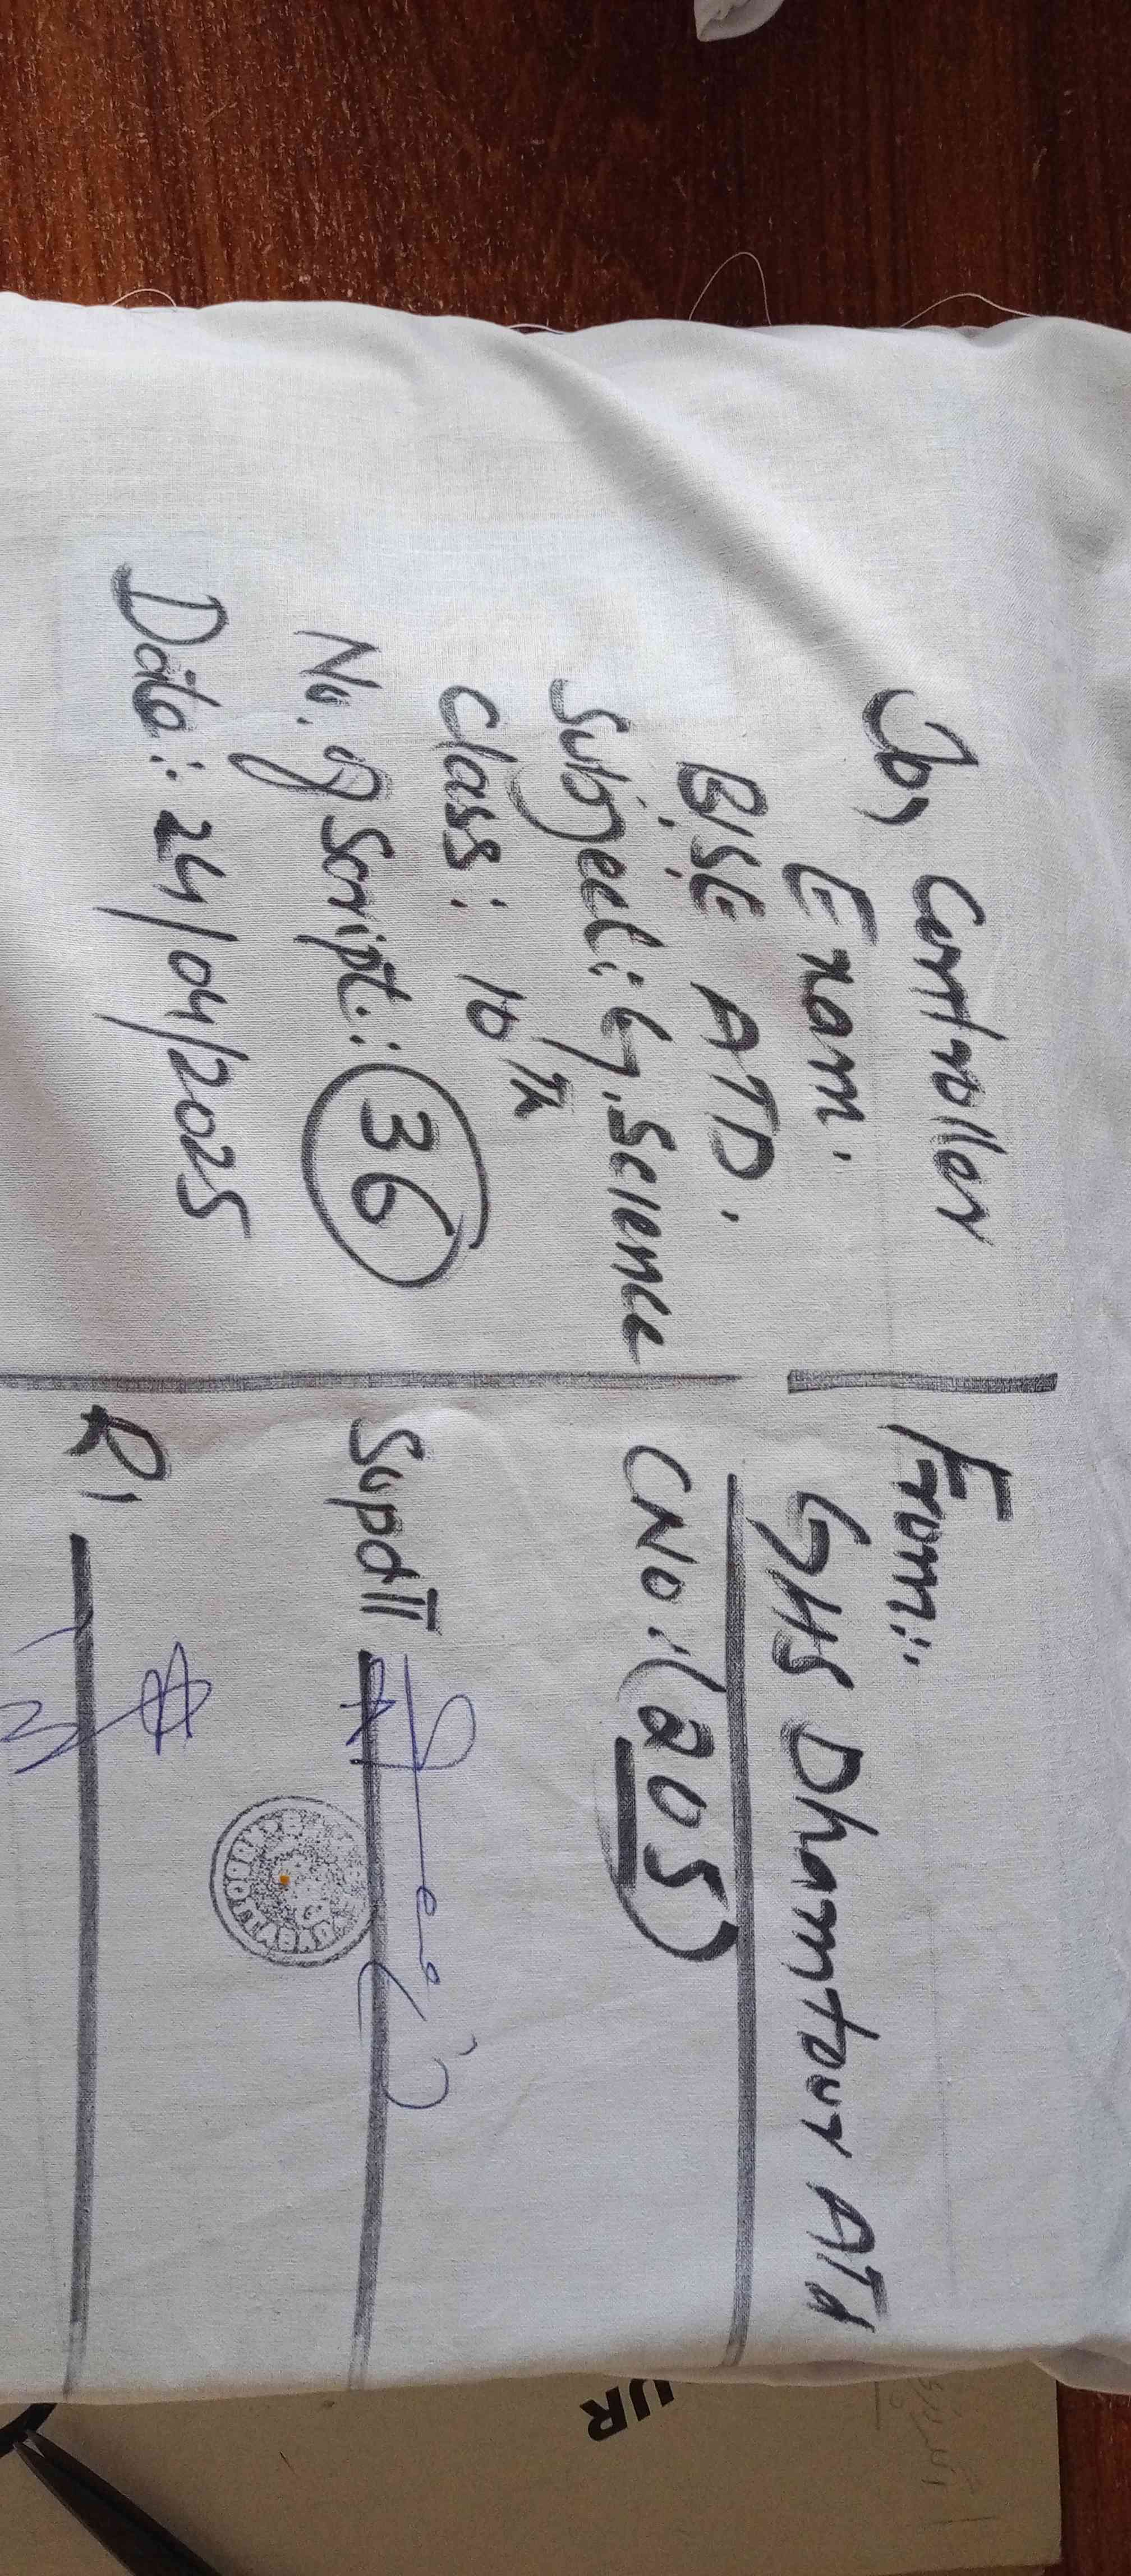 To, Controller
Exam.
BISE ATD.
Subject: G. Science
Class: 10th
No. of Script: 36
Date: 24/04/2025
From:
GHS Dhamtour ATd
CNO: (205)
Supdtt
RI
UR